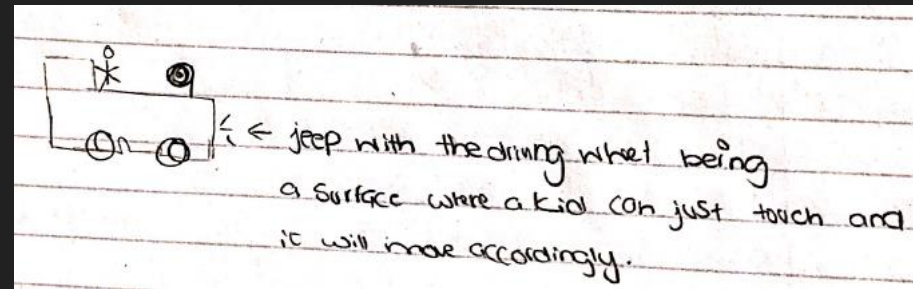 ← jeep with the driving wheel being
a surface where a kid can just touch and
it will move accordingly.